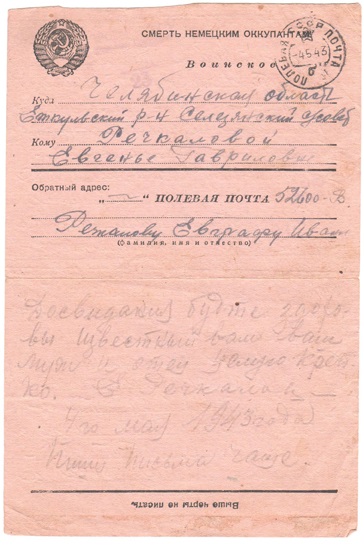 СМЕРТЬ НЕМЕЦКИМ ОККУПАНТАМ
Воинское
ПОЛЕВАЯ ПОЧТА
СССР
-4.5.43
б
Куда Челябинская область
Еткульский р-н Селезянский с/совет
Кому Речкаловой
Евгенье Гавриловне
Обратный адрес:
„—" ПОЛЕВАЯ ПОЧТА 52600-В
Речкалову Евграфу Иван
(фамилия, имя и отчество)
Досвидания будте здоро-
вы Известный вам Ваш
муж и отец целую креп-
ко. Е Речкалов
4го мая 1943 года
Пиши письма чаще.
Выше черты не писать.